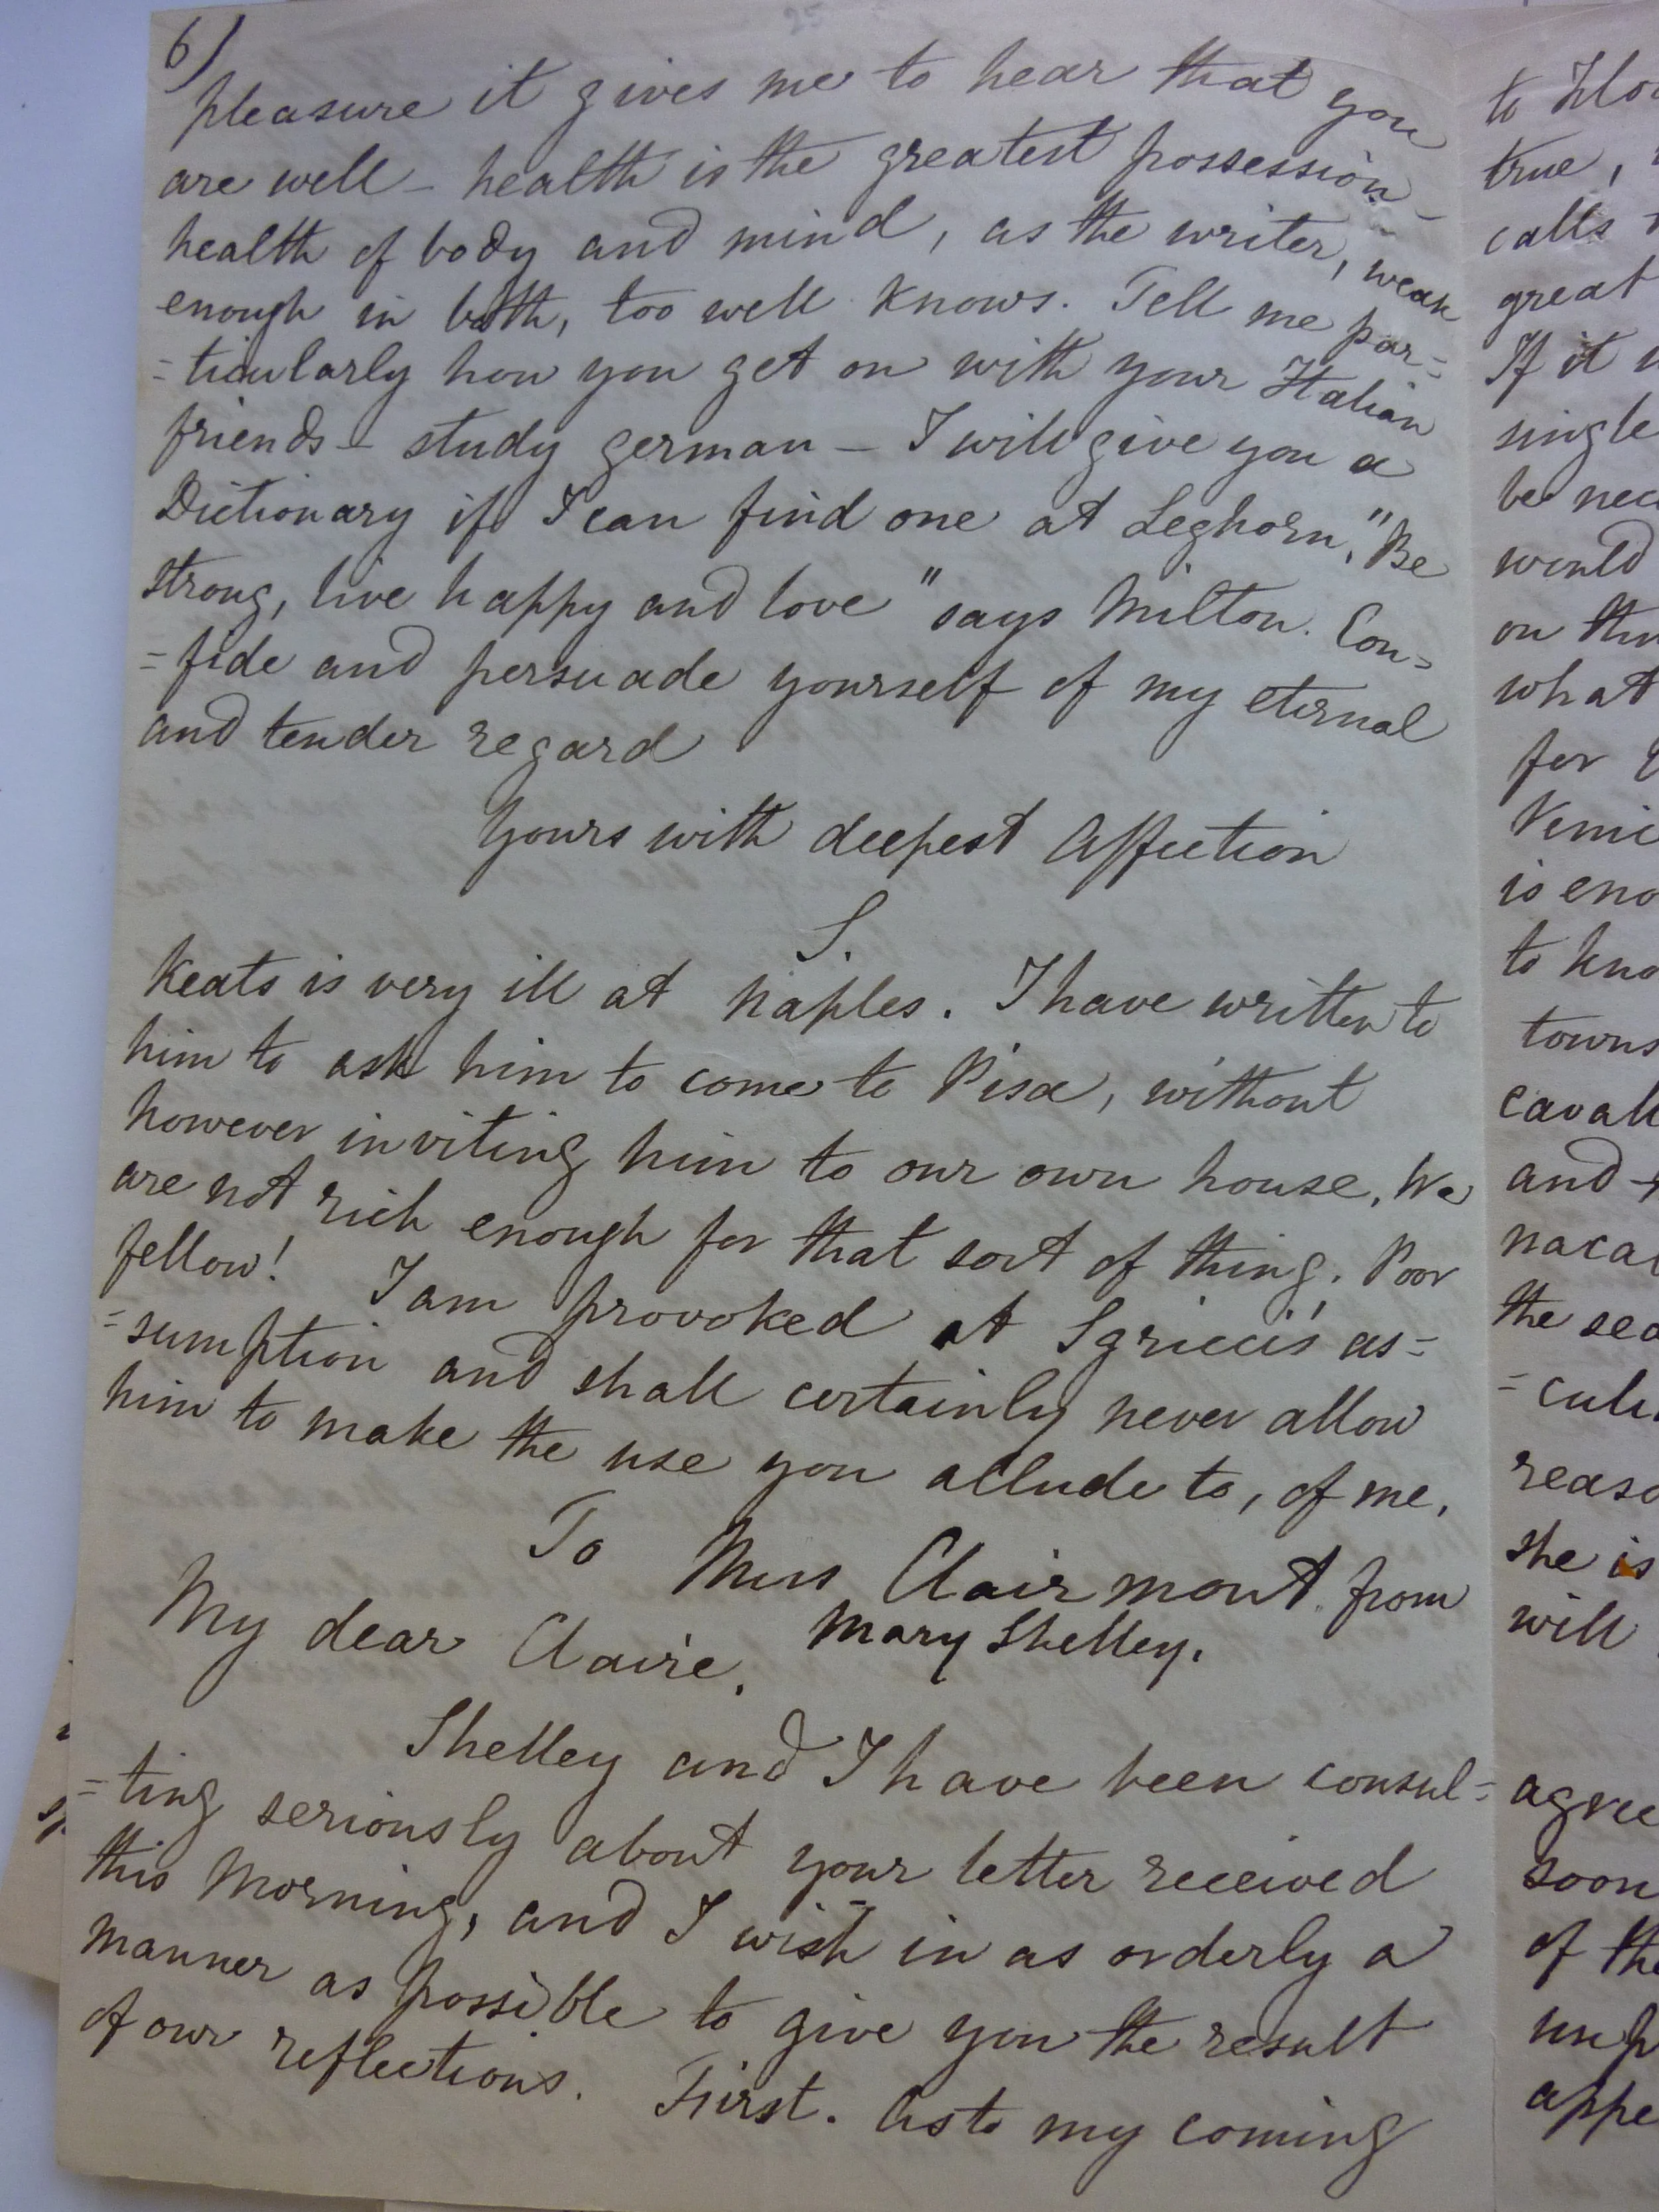 6)
pleasure it gives me to hear that you
are well – health is the greatest possession –
health of body and mind, as the writer, weak
enough in both, too well knows. Tell me par=
=ticularly how you get on with your Italian
friends – study german – I will give you a
Dictionary if I can find one at Leghorn. "Be
strong, live happy and love" says Milton. Con=
=fide and persuade yourself of my eternal
and tender regard
Yours with deepest affection
S.
Keats is very ill at Naples. I have written to
him to ask him to come to Pisa, without
however inviting him to our own house. We
are not rich enough for that sort of thing. Poor
fellow! I am provoked at Sgricci's as=
=sumption and shall certainly never allow
him to make the use you allude to, of me.
To Miss Clairmont from
Mary Shelley.
My dear Claire.
Shelley and I have been consul=
=ting seriously about your letter received
this Morning, and I wish in as orderly a
manner as possible to give you the result
of our reflections. First. As to my coming
to Flo
true,
calls
great
If it
single
be nec
would
on
what
for
Veni
is eno
to kno
towns
cavali
and
naca
the sea
=cul
reaso
she is
will
agree
soon
of the
unh
appe